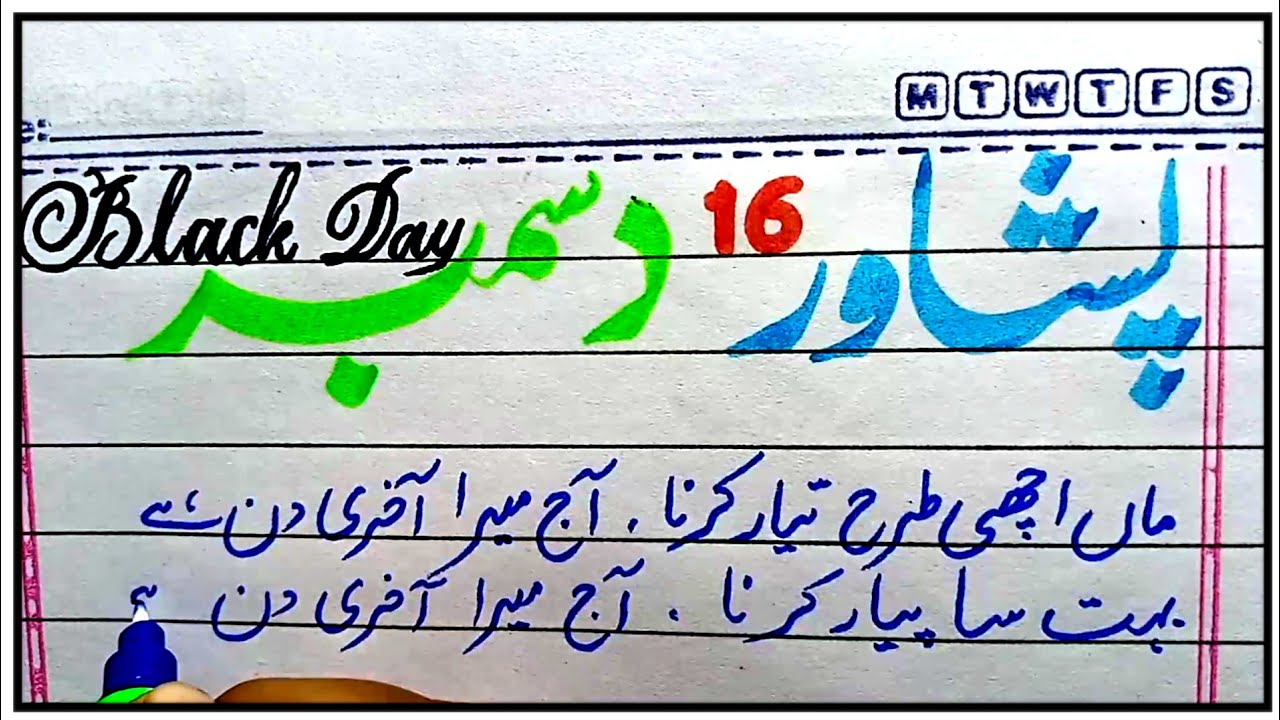 M T W T F S
Black Day
پشاور 16 دسمبر
ماں اچھی طرح تیار کرنا . آج میرا آخری دن ہے
بہت سا پیار کرنا . آج میرا آخری دن ہے